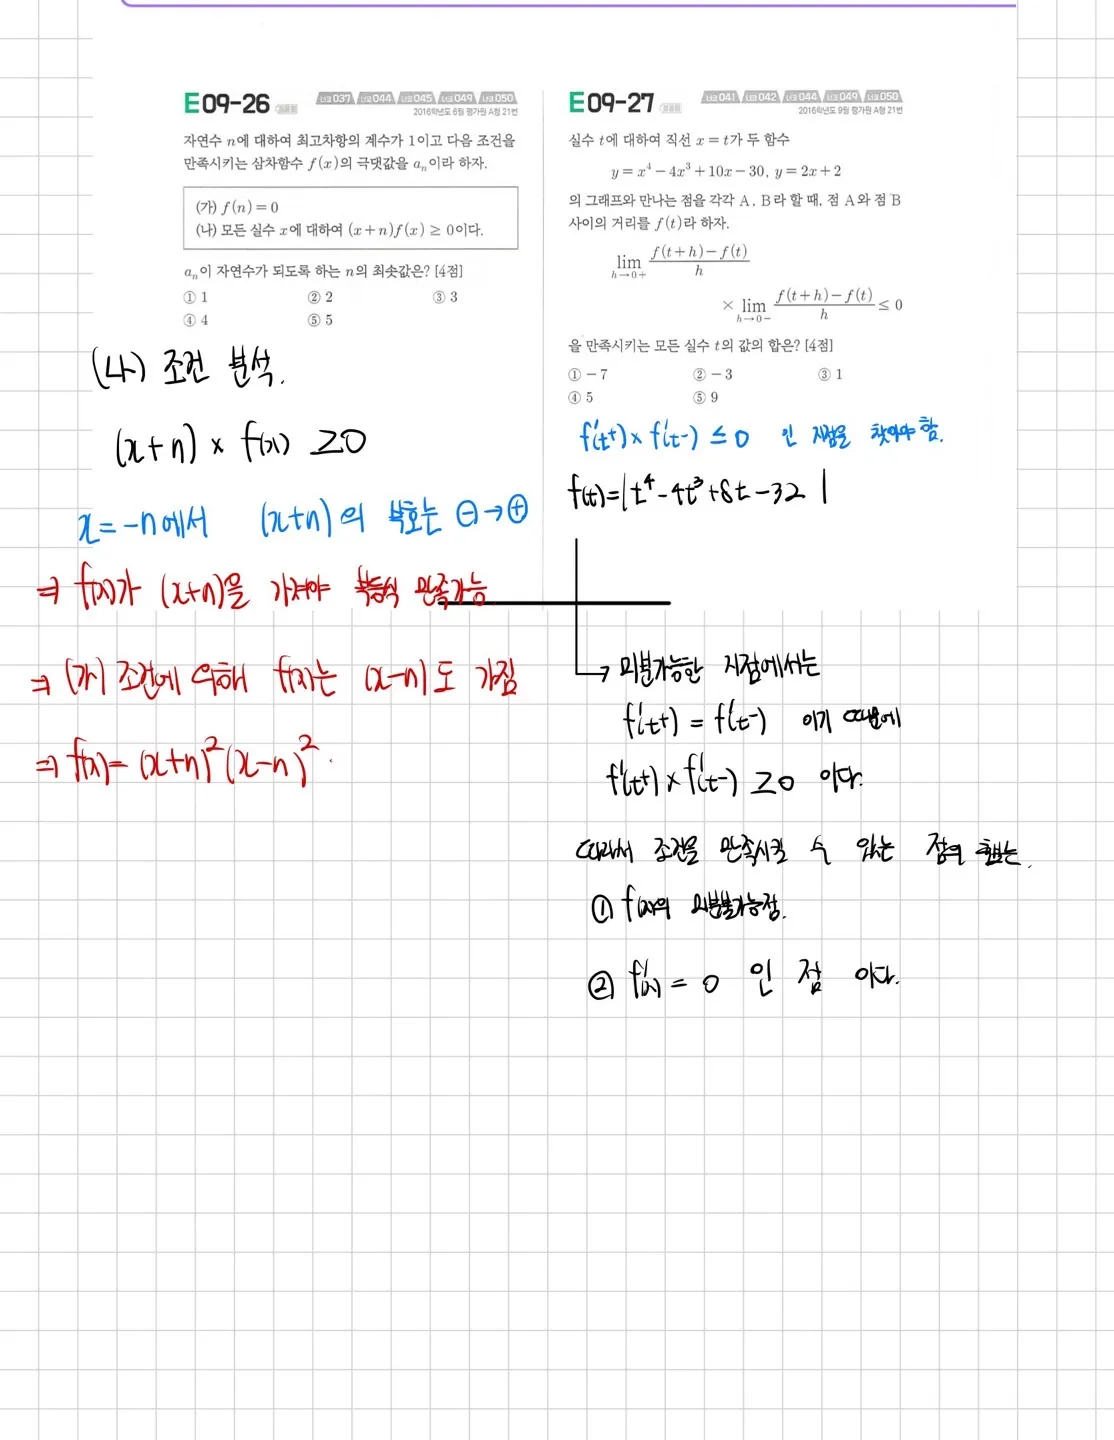 E09-26
너코 037 너코 044 너코 045 너코 049 너코 050
2016학년도 6월 평가원 A형 21번
자연수 n에 대하여 최고차항의 계수가 1이고 다음 조건을
만족시키는 삼차함수 f(x)의 극댓값을 aₙ이라 하자.
(가) f(n)=0
(나) 모든 실수 x에 대하여 (x+n)f(x) ≥ 0이다.
aₙ이 자연수가 되도록 하는 n의 최솟값은? [4점]
① 1 ② 2 ③ 3
④ 4 ⑤ 5
(나) 조건 분석.
(x+n) × f(x) ≥0
x=-n에서 (x+n)의 부호는 ⊖→⊕
⇒ f(x)가 (x+n)을 가져야 부등식 만족가능
⇒ (가) 조건에 의해 f(x)는 (x-n)도 가짐
⇒ f(x)= (x+n)²(x-n)².
E09-27
너코 041 너코 042 너코 044 너코 049 너코 050
2016학년도 9월 평가원 A형 21번
실수 t에 대하여 직선 x=t가 두 함수
y=x⁴-4x³+10x-30, y=2x+2
의 그래프와 만나는 점을 각각 A, B라 할 때, 점 A와 점 B
사이의 거리를 f(t)라 하자.
lim h→0+ f(t+h)-f(t) / h
× lim h→0- f(t+h)-f(t) / h ≤ 0
을 만족시키는 모든 실수 t의 값의 합은? [4점]
① -7 ② -3 ③ 1
④ 5 ⑤ 9
f'(t+) × f'(t-) ≤ 0 인 지점을 찾아야 함.
f(t)=|t⁴-4t³+8t-32|
→ 미분가능한 지점에서는
f'(t+) = f'(t-) 이기 때문에
f'(t+) × f'(t-) ≥0 이다.
따라서 조건을 만족시킬 수 있는 점의 후보는
① f(x)의 미분불가능점.
② f'(x) = 0 인 점 이다.